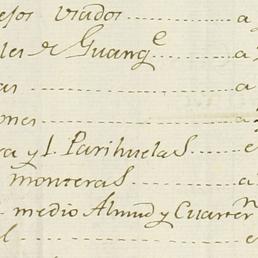 esos Viados ........ a
les de Guangᵉ ........ a
as ........ a
ones ........ a
ra y 1. Parihuelas ..... e
monteras ........ a
medio Almud y Cuarterⁿ
l ........ e